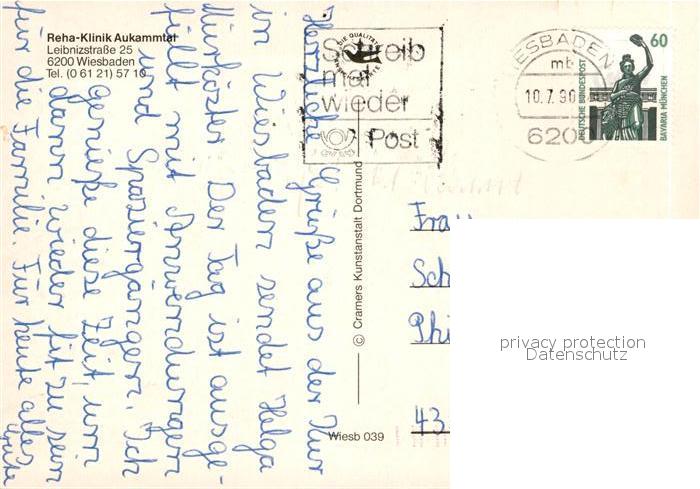 Reha-Klinik Aukammtal
Leibnizstraße 25
6200 Wiesbaden
Tel. (0 61 21) 57 10
Herzliche Grüße aus der Kur
in Wiesbaden sendet Helga
Münköster Der Tag ist ausge-
füllt mit Anwendungen
und Spaziergängen. Ich
genieße diese Zeit, um
dann wieder fit zu sein
für die Familie. Für heute alles
Gute
DIE QUALITÄT
Schreib
mal
wieder
Post
WIESBADEN
mb
10.7.90
6200
60
DEUTSCHE BUNDESPOST
BAVARIA MÜNCHEN
© Cramers Kunstanstalt Dortmund
Wiesb 039
Frau
Sch
Phi
43
privacy protection
Datenschutz